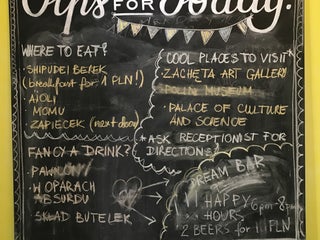 Tips FOR Today!
WHERE TO EAT?
- SHIPUDEI BEREK
(breakfast for 1 PLN!)
- AïOLI
- MOMU
- ZAPIECEK (next door)
COOL PLACES TO VISIT
- ZACHETA ART GALLERY
- POLIN MUSEUM
- PALACE OF CULTURE
AND SCIENCE
* ASK RECEPTIONIST FOR
DIRECTIONS
FANCY A DRINK?
- PAWILONY
- W OPARACH
ABSURDU
- SKŁAD BUTELEK
DREAM BAR
HAPPY 6pm-8pm
HOURS
2 BEERS for 11 PLN